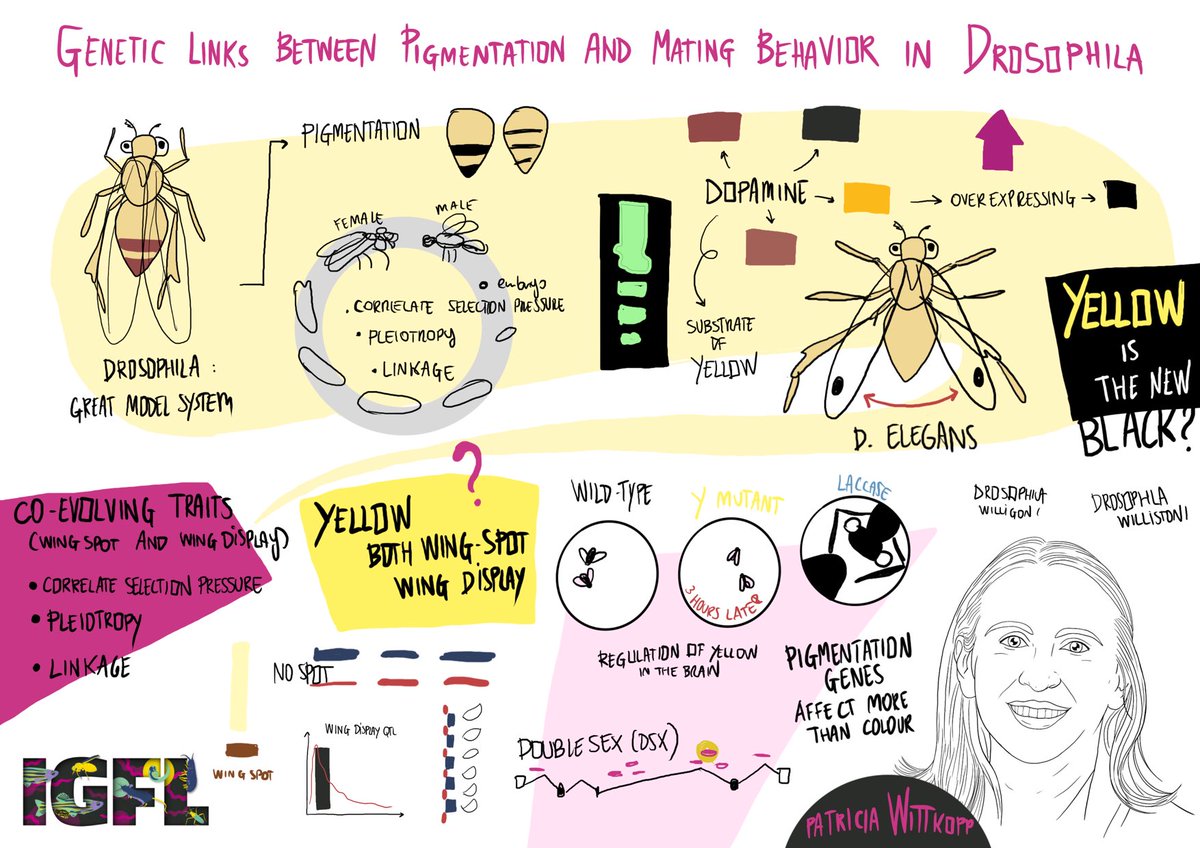 GENETIC LINKS BETWEEN PIGMENTATION AND MATING BEHAVIOR IN DROSOPHILA
PIGMENTATION
FEMALE
MALE
embryo
. CORRELATE SELECTION PRESSURE
• PLEIOTROPY
• LINKAGE
DROSOPHILA :
GREAT MODEL SYSTEM
DOPAMINE
OVER EXPRESSING
SUBSTRATE
OF
YELLOW
D. ELEGANS
YELLOW
IS
THE NEW
BLACK?
CO-EVOLVING TRAITS
(WING SPOT AND WING DISPLAY)
• CORRELATE SELECTION PRESSURE
• PLEIOTROPY
• LINKAGE
WING SPOT
IGFL
?
YELLOW
BOTH WING-SPOT
WING DISPLAY
NO SPOT
WING DISPLAY QTL
WILD-TYPE
Y MUTANT
3 HOURS LATER
LACCASE
REGULATION OF YELLOW
IN THE BRAIN
DOUBLESEX (DSX)
PIGMENTATION
GENES
AFFECT MORE
THAN COLOUR
DROSOPHILA
WILLIGONI
DROSOPHILA
WILLISTONI
PATRICIA WITTKOPP